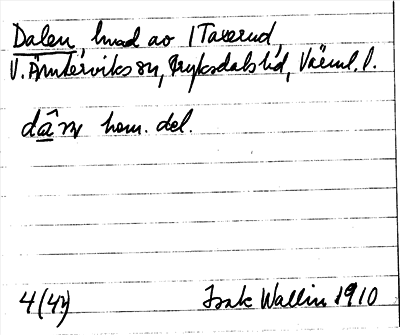 Dalen, hmd av 1 Taserud
V. Ämterviks sn, Fryksdals hd, Värml. l.
hem. del.
4 (44) Isak Wallin 1910